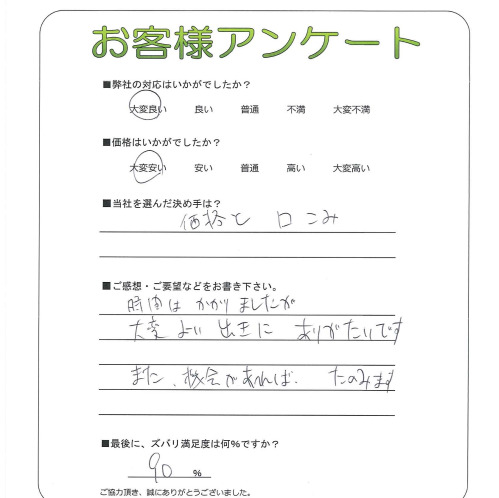 お客様アンケート
■弊社の対応はいかがでしたか？
大変良い 良い 普通 不満 大変不満
■価格はいかがでしたか？
大変安い 安い 普通 高い 大変高い
■当社を選んだ決め手は？
価格と 口こみ
■ご感想・ご要望などをお書き下さい。
時間は かかりましたが
大変 よい 出来に ありがたいです
また、機会があれば、 たのみます
■最後に、ズバリ満足度は何%ですか？
90 %
ご協力頂き、誠にありがとうございました。